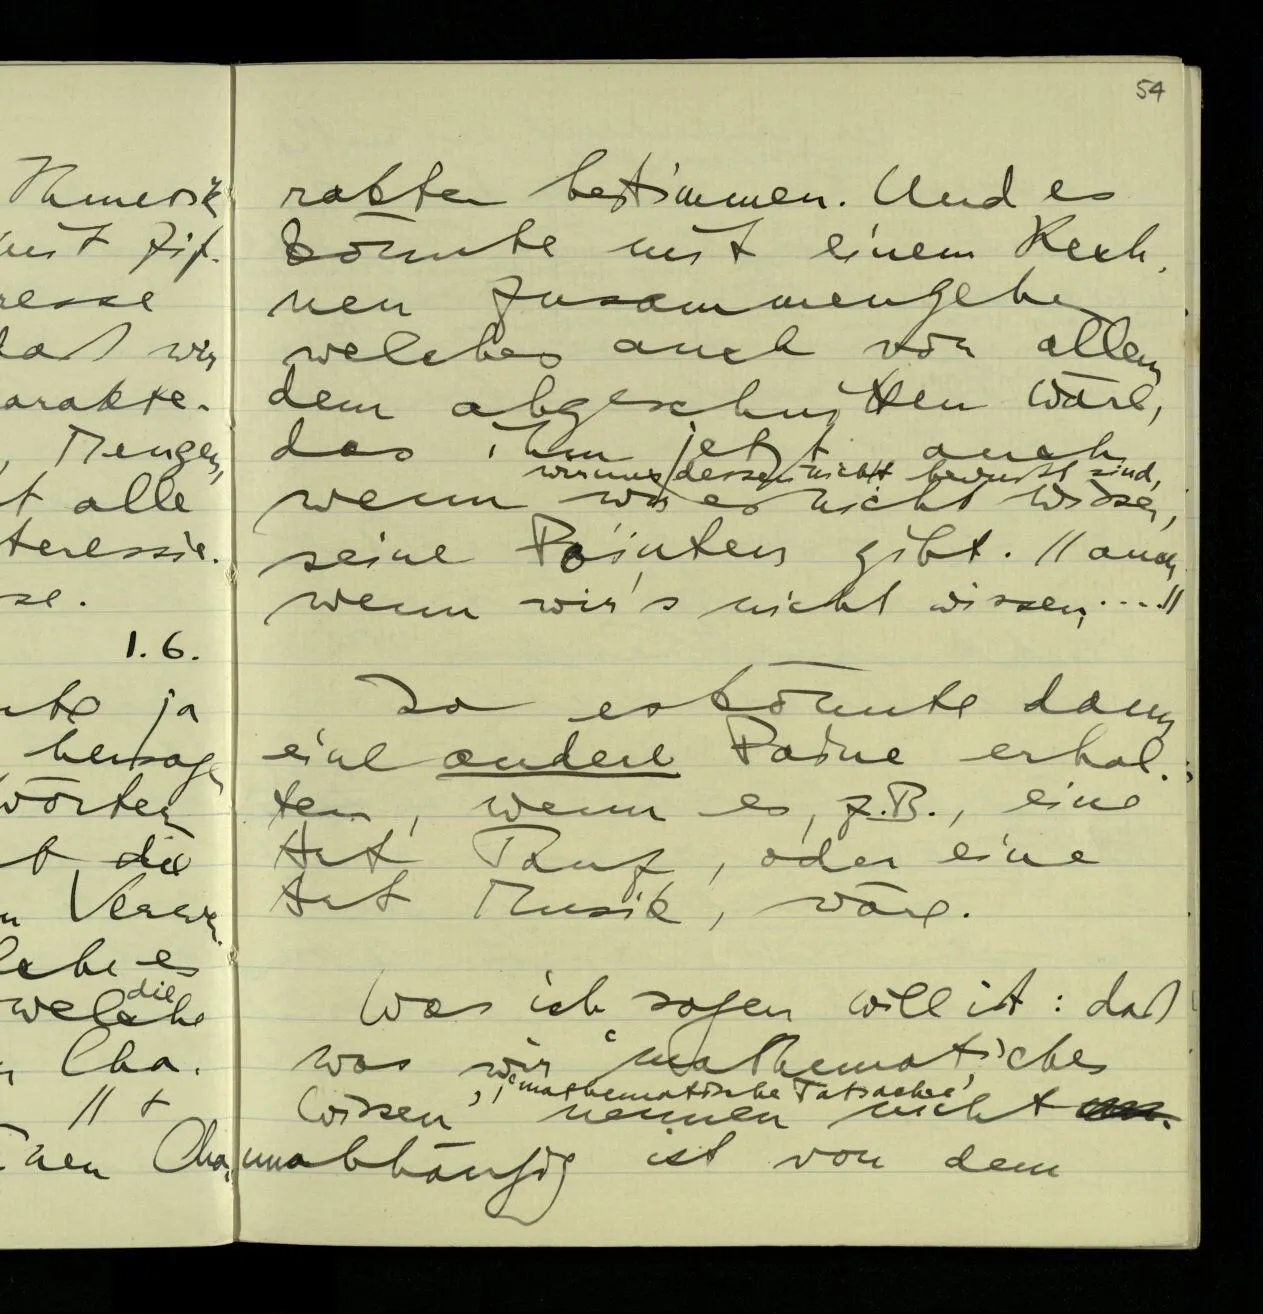 54
Numerik
mit Zif-
resse
daß wir
arakte-
, Mengen,
t alle
teressie-
se.
1.6.
nte ja
hersagen
wörter
t die
n Verwir-
lche es
die
welche
n Cha-
// +
nen Cha-
rakter bestimmen. Und es
könnte mit einem Rech-
nen zusammengehen
welches auch von allem
dem abgeschnitten wäre,
das ihm jetzt, auch
wir uns dessen nicht bewußt sind,
wenn wir es nicht wissen,
seine Pointen gibt. // auch
wenn wir's nicht wissen, .... //
Ja es könnte dann
eine andere Pointe erhal-
ten, wenn es, z.B., eine
Art Tanz, oder eine
Art Musik, wäre.
Was ich sagen will ist: daß
was wir 'mathematisches
, 'mathematische Tatsache',
Wissen' nennen nicht
unabhängig ist von dem